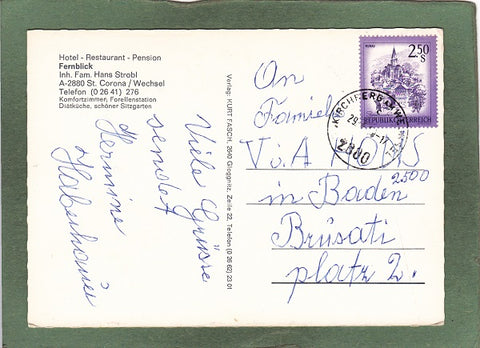 Hotel - Restaurant - Pension
Fernblick
Inh. Fam. Hans Strobl
A-2880 St. Corona / Wechsel
Telefon (0 26 41) 276
Komfortzimmer, Forellenstation
Diätküche, schöner Sitzgarten
Viele Grüsse
sendet
Hermine
Verlag: KURT FASCH, 2640 Gloggnitz, Zeile 22, Telefon (0 26 62) 23 01
2.50
S
REPUBLIK ÖSTERREICH
KIRCHBERG
2880
An
Familie
2500
in Baden
Brusati
platz 2.